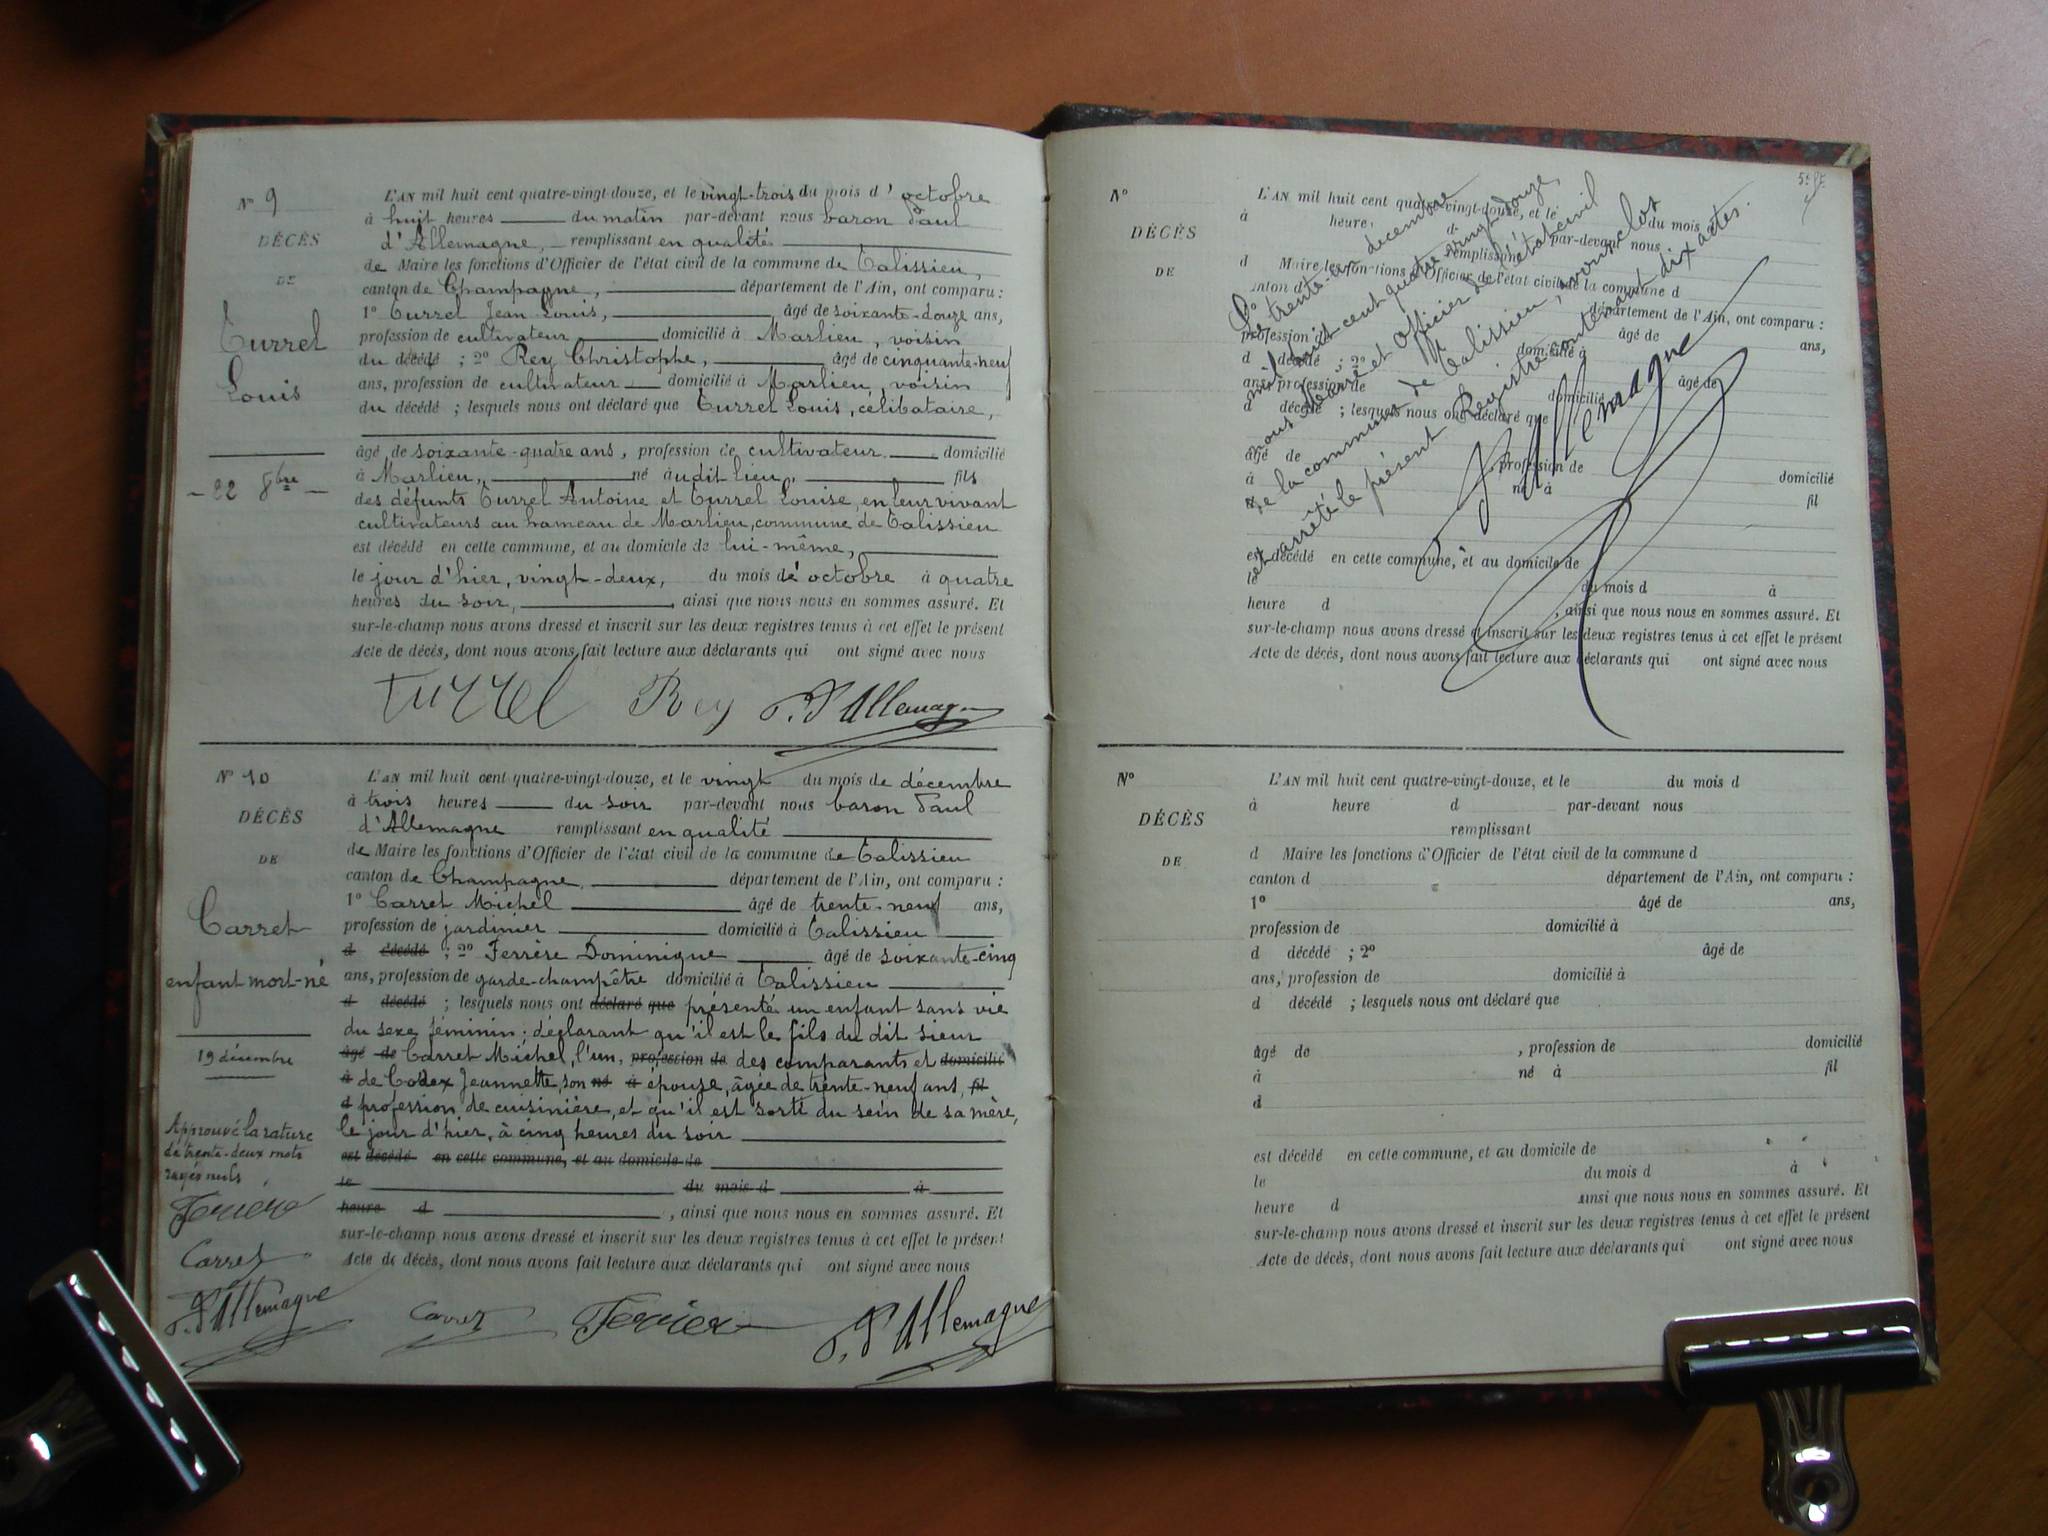 N° 9
DÉCÈS
DE
Turrel
Louis
— 22 8bre —
L'AN mil huit cent quatre-vingt-douze, et le vingt-trois du mois d'octobre
à huit heures du matin par-devant nous baron Paul
d'Allemagne, remplissant en qualité
de Maire les fonctions d'Officier de l'état civil de la commune de Talissieu,
canton de Champagne, département de l'Ain, ont comparu :
1° Turrel Jean Louis, âgé de soixante-douze ans,
profession de cultivateur domicilié à Marlieu, voisin
du décédé ; 2° Rey Christophe, âgé de cinquante-neuf
ans, profession de cultivateur domicilié à Marlieu, voisin
du décédé ; lesquels nous ont déclaré que Turrel Louis, célibataire,
âgé de soixante-quatre ans, profession de cultivateur domicilié
à Marlieu, né audit lieu, fils
des défunts Turrel Antoine et Turrel Louise, en leur vivant
cultivateurs au hameau de Marlieu, commune de Talissieu
est décédé en cette commune, et au domicile de lui-même,
le jour d'hier, vingt-deux, du mois d'octobre à quatre
heures du soir, ainsi que nous nous en sommes assuré. Et
sur-le-champ nous avons dressé et inscrit sur les deux registres tenus à cet effet le présent
Acte de décès, dont nous avons fait lecture aux déclarants qui ont signé avec nous
Turrel Rey P. d'Allemagne
N° 10
DÉCÈS
DE
Carret
enfant mort-né
19 décembre
Approuvé la rature
de trente-deux mots
rayés nuls
Ferrière
Carret
P. d'Allemagne
L'AN mil huit cent quatre-vingt-douze, et le vingt du mois de décembre
à trois heures du soir par-devant nous baron Paul
d'Allemagne remplissant en qualité
de Maire les fonctions d'Officier de l'état civil de la commune de Talissieu
canton de Champagne, département de l'Ain, ont comparu :
1° Carret Michel âgé de trente-neuf ans,
profession de jardinier domicilié à Talissieu
d décédé ; 2° Ferrère Dominique âgé de soixante-cinq
ans, profession de garde-champêtre domicilié à Talissieu
d décédé ; lesquels nous ont déclaré que présenté un enfant sans vie
du sexe féminin ; déclarant qu'il est le fils du dit sieur
âgé de Carret Michel, l'un, profession de des comparants et domicilié
à de Jeannette, son né à épouse, âgée de trente-neuf ans, fil
d profession de cuisinière, et qu'il est sorti du sein de sa mère,
le jour d'hier, à cinq heures du soir
est décédé en cette commune, et au domicile de
le du mois d à
heure d , ainsi que nous nous en sommes assuré. Et
sur-le-champ nous avons dressé et inscrit sur les deux registres tenus à cet effet le présent
Acte de décès, dont nous avons fait lecture aux déclarants qui ont signé avec nous
Carret P. d'Allemagne
N°
DÉCÈS
DE
L'AN mil huit cent quatre-vingt-douze, et le du mois
à heure, d par-devant nous
remplissant
d Maire les fonctions d'Officier de l'état civil de la commune d
canton d département de l'Ain, ont comparu :
profession d âgé de ans,
d décédé ; 2° domicilié à
ans, profession de domicilié âgé de
d décédé ; lesquels nous ont déclaré que
âgé de , profession de domicilié
à né à fil
est décédé en cette commune, et au domicile de
le du mois d à
heure d , ainsi que nous nous en sommes assuré. Et
sur-le-champ nous avons dressé et inscrit sur les deux registres tenus à cet effet le présent
Acte de décès, dont nous avons fait lecture aux déclarants qui ont signé avec nous
Le trente-et-un décembre
mil huit cent quatre vingt douze
nous Maire et Officier de l'état civil
de la commune de Talissieu, avons clos
et arrêté le présent Registre contenant dix actes.
P. d'Allemagne
N°
DÉCÈS
DE
L'AN mil huit cent quatre-vingt-douze, et le du mois d
à heure d par-devant nous
remplissant
d Maire les fonctions d'Officier de l'état civil de la commune d
canton d département de l'Ain, ont comparu :
1° âgé de ans,
profession de domicilié à
d décédé ; 2° âgé de
ans, profession de domicilié à
d décédé ; lesquels nous ont déclaré que
âgé de , profession de domicilié
à né à fil
d
est décédé en cette commune, et au domicile de
le du mois d à
heure d ainsi que nous nous en sommes assuré. Et
sur-le-champ nous avons dressé et inscrit sur les deux registres tenus à cet effet le présent
Acte de décès, dont nous avons fait lecture aux déclarants qui ont signé avec nous